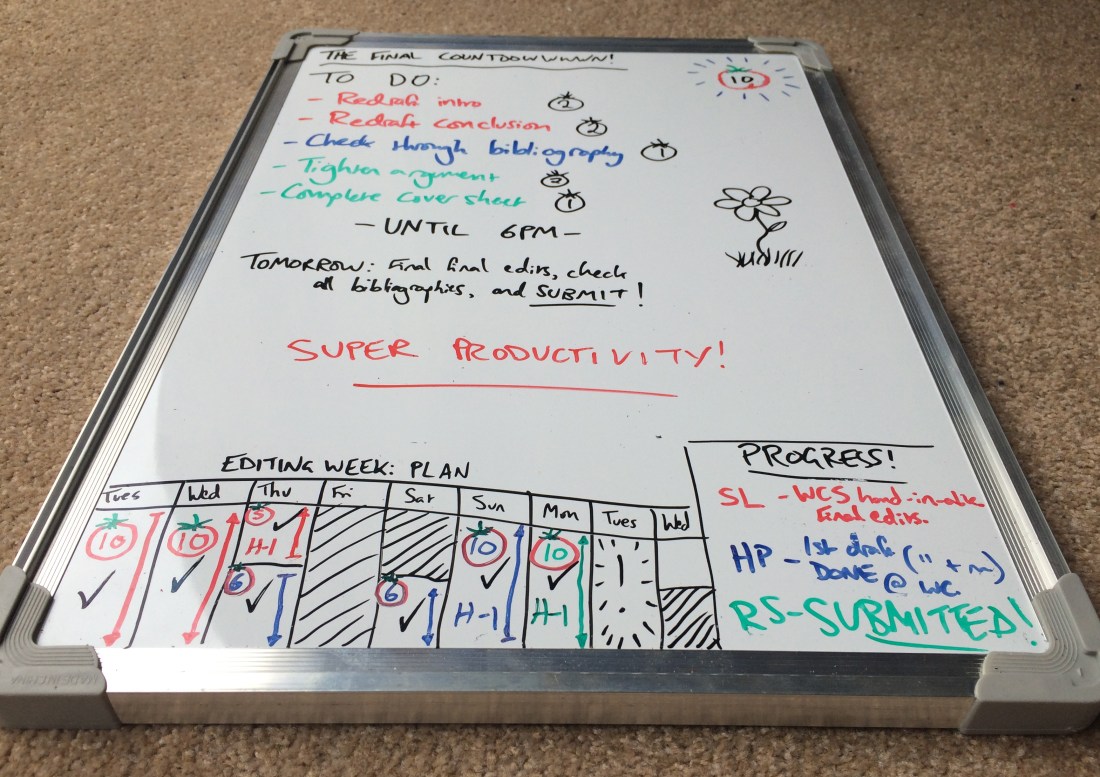 THE FINAL COUNTDOWWWWN!
10
TO DO:
- Redraft intro 2
- Redraft conclusion 2
- Check through bibliography 1
- Tighten argument 2
- Complete cover sheet 1
- UNTIL 6PM -
TOMORROW: Final final edits, check
all bibliographies, and SUBMIT!
SUPER PRODUCTIVITY!
EDITING WEEK: PLAN
Tues Wed Thu Fri Sat Sun Mon Tues Wed
10 10 5 10 10 !
H-1
6 6
H-1 H-1
PROGRESS!
SL - WCS hand-in-able
final edits.
HP - 1st draft (" + m)
DONE @ WC
RS-SUBMITTED!